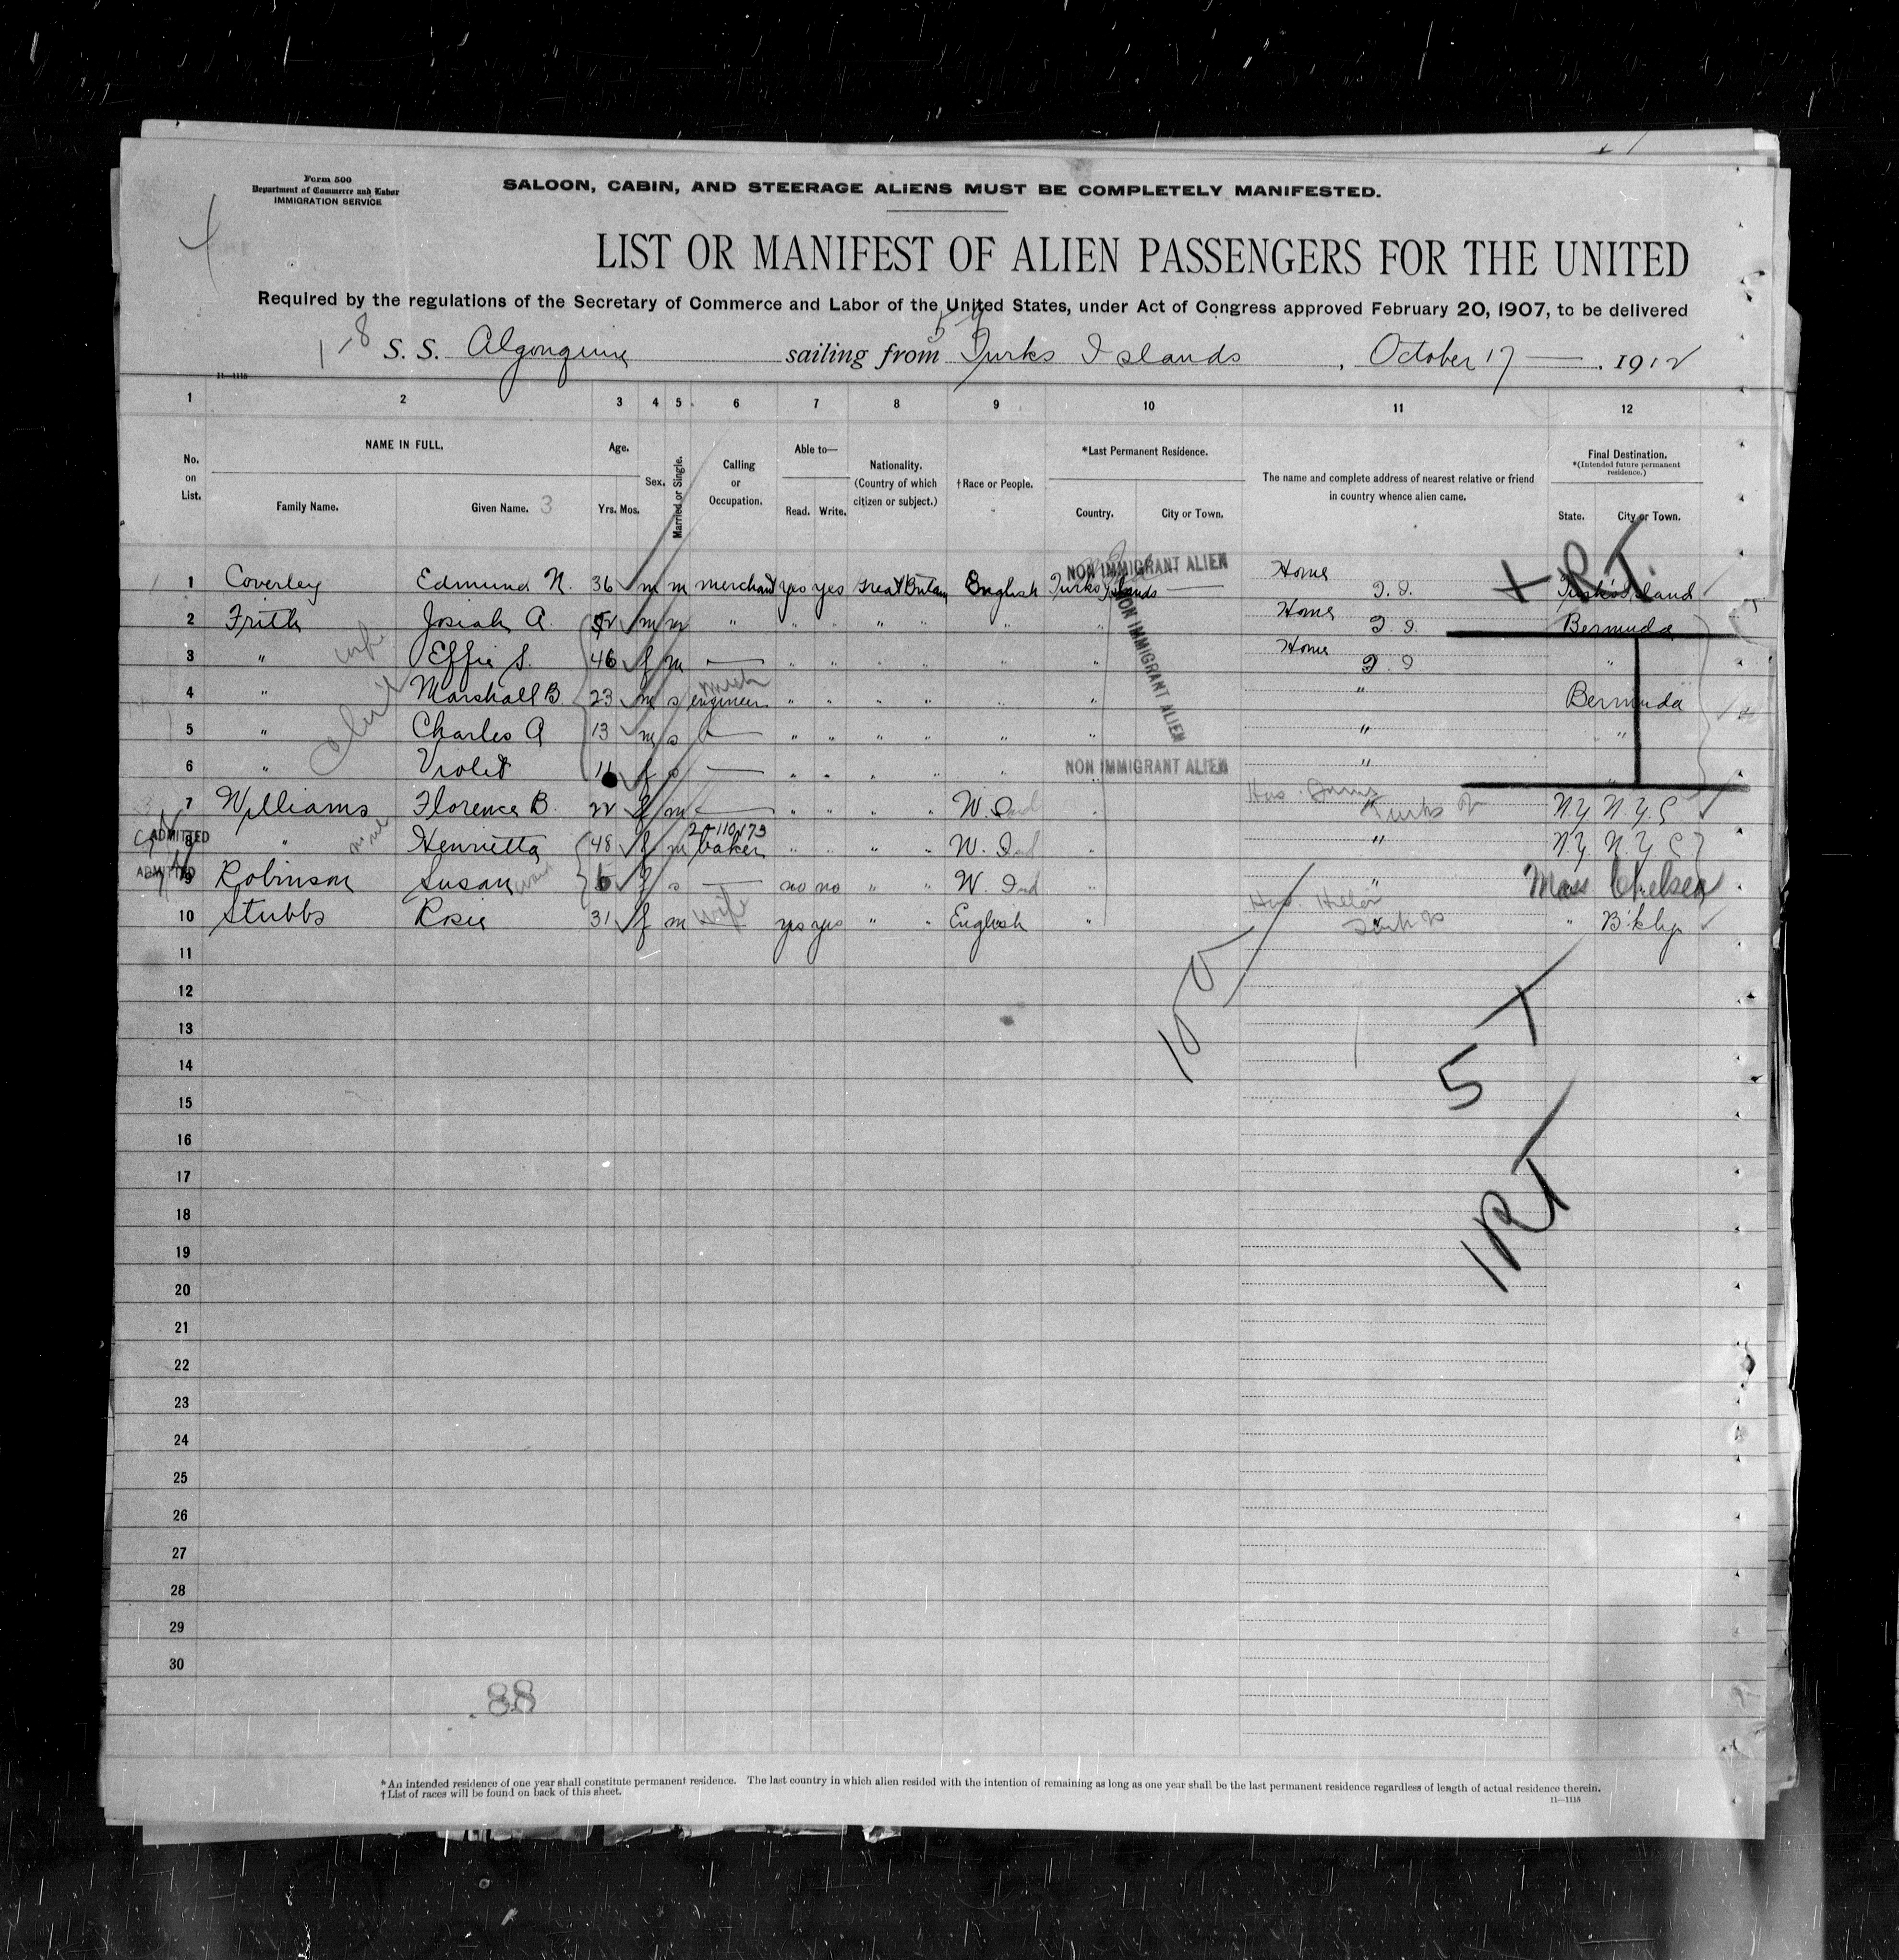 Form 500
Department of Commerce and Labor
IMMIGRATION SERVICE
SALOON, CABIN, AND STEERAGE ALIENS MUST BE COMPLETELY MANIFESTED.
LIST OR MANIFEST OF ALIEN PASSENGERS FOR THE UNITED
Required by the regulations of the Secretary of Commerce and Labor of the United States, under Act of Congress approved February 20, 1907, to be delivered
1-8 S. S. Algonquin sailing from Turks Islands, October 17, 1912
11—1115
1 2 3 4 5 6 7 8 9 10 11 12
No. on List.
NAME IN FULL.
Family Name. Given Name. 3
Age.
Yrs. Mos.
Sex.
Married or Single.
Calling or Occupation.
Able to—
Read. Write.
Nationality. (Country of which citizen or subject.)
†Race or People.
*Last Permanent Residence.
Country. City or Town.
The name and complete address of nearest relative or friend in country whence alien came.
Final Destination.
*(Intended future permanent residence.)
State. City or Town.
NON IMMIGRANT ALIEN
+ RT.
1 Coverley Edmund N. 36 m m merchant yes yes Great Britain English Turks Islands — Home T. I. Turks Island
2 Frith Josiah A. 52 m m " " " " " " " Home T. I. Bermuda
3 " wife Effie S. 46 f m — " " " " " " Home T. I "
NON IMMIGRANT ALIEN
4 " Marshall B. 23 m s engineer " " " " " " " Bermuda
5 " Charles A 13 m s — " " " " " " " "
6 " Violet 11 f s — " " " " " NON IMMIGRANT ALIEN " "
7 Williams Florence B. 22 f m — " " " " W. Ind " " Turks N.Y. N.Y.C
2-110173
ADMITTED 8 " Henrietta 48 f m baker " " " " W. Ind " " N.Y. N.Y C
ADMITTED 9 Robinson Susan f s — no no " " W. Ind " " Mass Chelsea
10 Stubbs Rosie 31 f m wife yes yes " " English " " B'klyn
11
12
13
14
15
16
17
18
19
20
21
22
23
24
25
26
27
28
29
30
5 T
1RT
88
*An intended residence of one year shall constitute permanent residence. The last country in which alien resided with the intention of remaining as long as one year shall be the last permanent residence regardless of length of actual residence therein.
†List of races will be found on back of this sheet.
11—1115